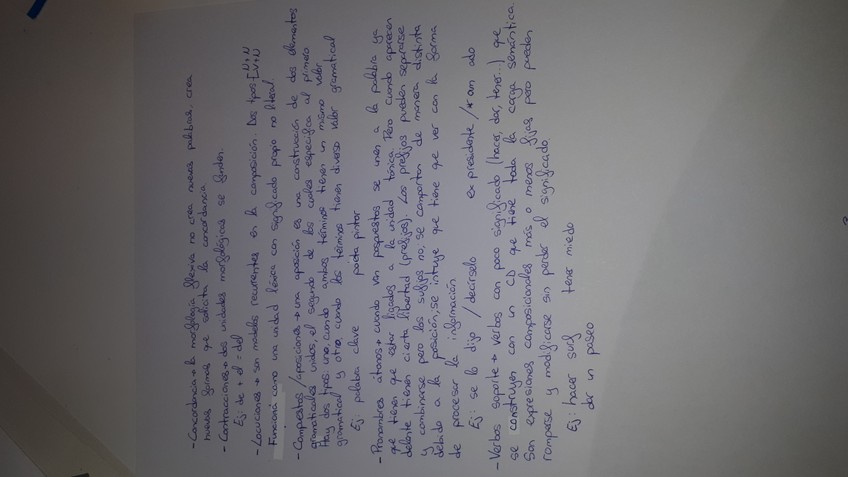 - Concordancia → la morfología flexiva no crea nuevas palabras, crea
nuevas formas que solicita la concordancia
- Contracciones → dos unidades morfológicas se funden.
Ej: de + el = del
- Locuciones → son modelos recurrentes en la composición. Dos tipos: [N+N
V+N
Funciona como una unidad léxica con significado propio no literal.
- Compuestos/aposiciones → una aposición es una construcción de dos elementos
gramaticales unidos, el segundo de los cuales especifica al primero
Hay dos tipos: uno, cuando ambos términos tienen un mismo valor
gramatical y otro, cuando los términos tienen diverso valor gramatical
Ej: palabra clave poeta pintor
- Pronombres átonos → cuando van pospuestos se unen a la palabra ya
que tienen que estar ligados a la unidad tónica. Pero cuando aparecen
delante tienen cierta libertad (prefijos). Los prefijos pueden separarse
y combinarse pero los sufijos no, se comportan de manera distinta
debido a la posición, se intuye que tiene que ver con la forma
de procesar la información
Ej: se lo dijo / decírselo ex presidente / * am ado
- Verbos soporte → verbos con poco significado (hacer, dar, tener...) que
se construyen con un CD que tiene toda la carga semántica.
Son expresiones composicionales más o menos fijas pero pueden
romperse y modificarse sin perder el significado
Ej: hacer surf tener miedo
dar un paseo